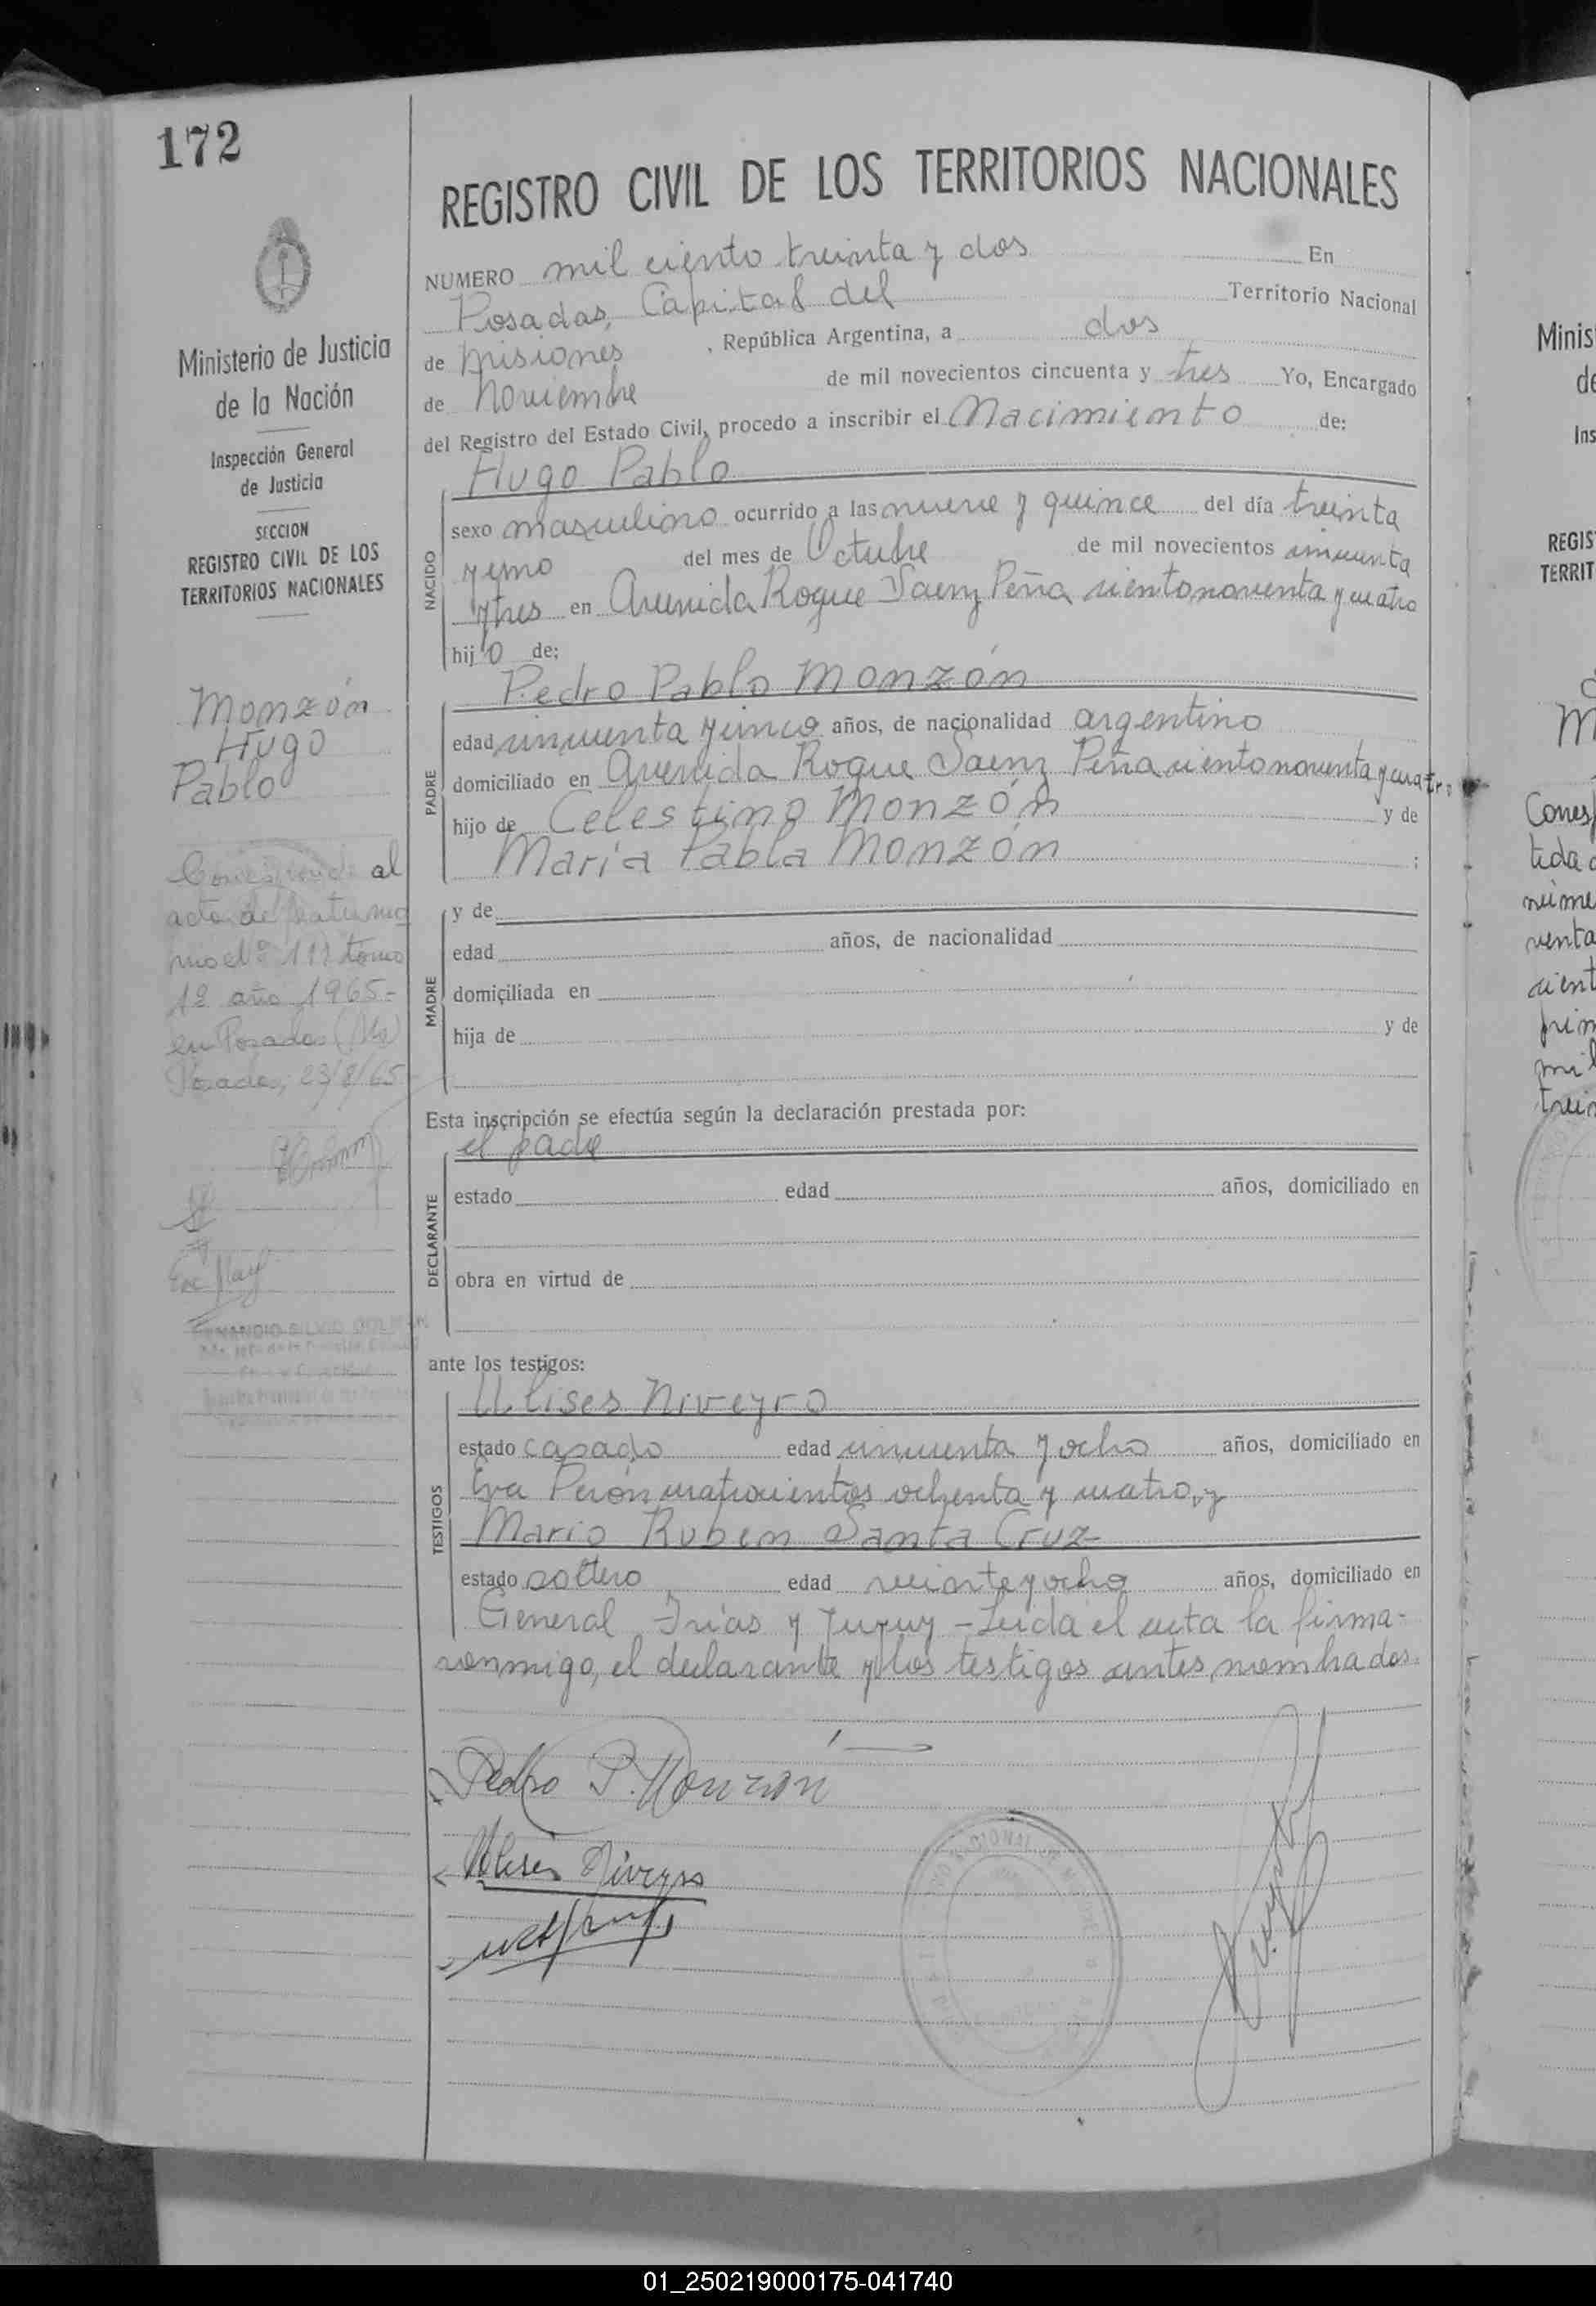 172
REGISTRO CIVIL DE LOS TERRITORIOS NACIONALES
Ministerio de Justicia
de la Nación
Inspección General
de Justicia
SECCION
REGISTRO CIVIL DE LOS
TERRITORIOS NACIONALES
Monzón
Hugo
Pablo
Corresponde al
acta de
Nº tomo
1º año 1965-
en Posadas (Ms)
Posadas, 23/8/65
NUMERO mil ciento treinta y dos En
Posadas, Capital del Territorio Nacional
de Misiones, República Argentina, a dos
de Noviembre de mil novecientos cincuenta y tres Yo, Encargado
del Registro del Estado Civil, procedo a inscribir el Nacimiento de:
Hugo Pablo
NACIDO
sexo masculino ocurrido a las nueve y quince del día treinta
y uno del mes de Octubre de mil novecientos cincuenta
y tres en Avenida Roque Saenz Peña ciento noventa y cuatro
hijo de:
Pedro Pablo Monzón
PADRE
edad cincuenta y cinco años, de nacionalidad argentino
domiciliado en Avenida Roque Saenz Peña ciento noventa y cuatro
hijo de Celestino Monzón y de
María Pabla Monzón ;
MADRE
y de
edad años, de nacionalidad
domiciliada en
hija de y de
Esta inscripción se efectúa según la declaración prestada por:
el padre
DECLARANTE
estado edad años, domiciliado en
obra en virtud de
ante los testigos:
Ulises Niveyro
TESTIGOS
estado casado edad cincuenta y ocho años, domiciliado en
Eva Perón cuatrocientos ochenta y cuatro, y
Mario Ruben Santa Cruz
estado soltero edad veinte y ocho años, domiciliado en
General Frías y Jujuy - Leida el acta la firma-
conmigo, el declarante y los testigos antes nombrados.
Pedro P. Monzón
Ulises Niveyro
Minis
de
Ins
REGIS
TERRIT
01_250219000175-041740